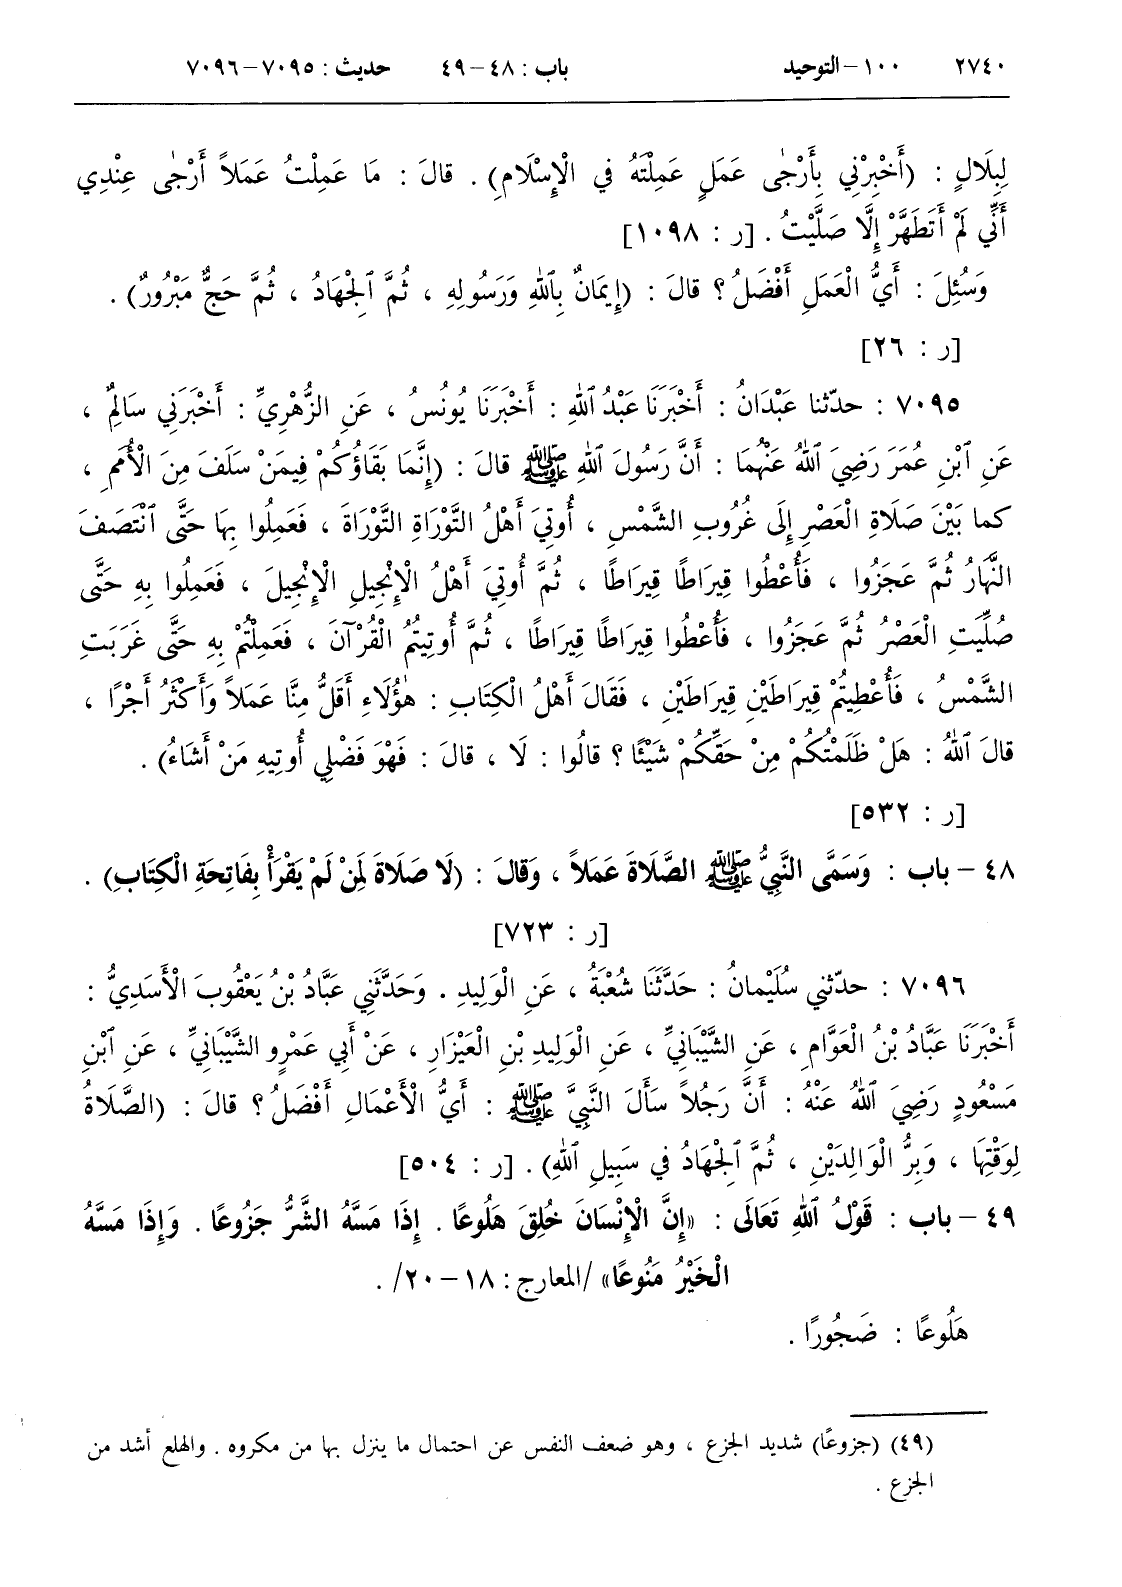 ٢٧٤٠ ١٠٠ – التوحيد باب : ٤٨ – ٤٩ حديث : ٧٠٩٥ – ٧٠٩٦
لِبِلَالٍ : (أَخْبِرْنِي بِأَرْجٰى عَمَلٍ عَمِلْتَهُ فِي الْإِسْلَامِ) . قالَ : مَا عَمِلْتُ عَمَلاً أَرْجٰى عِنْدِي
أَنِّي لَمْ أَتَطَهَّرْ إِلَّا صَلَّيْتُ . [ر : ١٠٩٨]
وَسُئِلَ : أَيُّ الْعَمَلِ أَفْضَلُ ؟ قالَ : (إِيمَانٌ بِٱللهِ وَرَسُولِهِ ، ثُمَّ ٱلْجِهَادُ ، ثُمَّ حَجٌّ مَبْرُورٌ) .
[ر : ٢٦]
٧٠٩٥ : حدّثنا عَبْدَانُ : أَخْبَرَنَا عَبْدُ ٱللهِ : أَخْبَرَنَا يُونُسُ ، عَنِ الزُّهْرِيِّ : أَخْبَرَنِي سَالِمٌ ،
عَنِ ٱبْنِ عُمَرَ رَضِيَ ٱللهُ عَنْهُمَا : أَنَّ رَسُولَ ٱللهِ ﷺ قالَ : (إِنَّمَا بَقَاؤُكُمْ فِيمَنْ سَلَفَ مِنَ الْأُمَمِ ،
كما بَيْنَ صَلَاةِ الْعَصْرِ إِلَى غُرُوبِ الشَّمْسِ ، أُوتِيَ أَهْلُ التَّوْرَاةِ التَّوْرَاةَ ، فَعَمِلُوا بِهَا حَتَّى ٱنْتَصَفَ
النَّهَارُ ثُمَّ عَجَزُوا ، فَأُعْطُوا قِيرَاطًا قِيرَاطًا ، ثُمَّ أُوتِيَ أَهْلُ الْإِنْجِيلِ الْإِنْجِيلَ ، فَعَمِلُوا بِهِ حَتَّى
صُلِّيَتِ الْعَصْرُ ثُمَّ عَجَزُوا ، فَأُعْطُوا قِيرَاطًا قِيرَاطًا ، ثُمَّ أُوتِيتُمُ الْقُرْآنَ ، فَعَمِلْتُمْ بِهِ حَتَّى غَرَبَتِ
الشَّمْسُ ، فَأُعْطِيتُمْ قِيرَاطَيْنِ قِيرَاطَيْنِ ، فَقَالَ أَهْلُ الْكِتَابِ : هٰؤُلَاءِ أَقَلُّ مِنَّا عَمَلاً وَأَكْثَرُ أَجْرًا ،
قالَ ٱللهُ : هَلْ ظَلَمْتُكُمْ مِنْ حَقِّكُمْ شَيْئًا ؟ قالُوا : لَا ، قالَ : فَهْوَ فَضْلِي أُوتِيهِ مَنْ أَشَاءُ) .
[ر : ٥٣٢]
٤٨ – باب : وَسَمَّى النَّبِيُّ ﷺ الصَّلَاةَ عَمَلاً ، وَقالَ : (لَا صَلَاةَ لِمَنْ لَمْ يَقْرَأْ بِفَاتِحَةِ الْكِتَابِ) .
[ر : ٧٢٣]
٧٠٩٦ : حدّثني سُلَيْمانُ : حَدَّثَنَا شُعْبَةُ ، عَنِ الْوَلِيدِ . وَحَدَّثَنِي عَبَّادُ بْنُ يَعْقُوبَ الْأَسَدِيُّ :
أَخْبَرَنَا عَبَّادُ بْنُ الْعَوَّامِ ، عَنِ الشَّيْبَانِيِّ ، عَنِ الْوَلِيدِ بْنِ الْعَيْزَارِ ، عَنْ أَبِي عَمْرٍو الشَّيْبَانِيِّ ، عَنِ ٱبْنِ
مَسْعُودٍ رَضِيَ ٱللهُ عَنْهُ : أَنَّ رَجُلاً سَأَلَ النَّبِيَّ ﷺ : أَيُّ الْأَعْمَالِ أَفْضَلُ ؟ قالَ : (الصَّلَاةُ
لِوَقْتِهَا ، وَبِرُّ الْوَالِدَيْنِ ، ثُمَّ ٱلْجِهَادُ فِي سَبِيلِ ٱللهِ) . [ر : ٥٠٤]
٤٩ – باب : قَوْلُ ٱللهِ تَعَالَى : «إِنَّ الْإِنْسَانَ خُلِقَ هَلُوعًا . إِذَا مَسَّهُ الشَّرُّ جَزُوعًا . وَإِذَا مَسَّهُ
الْخَيْرُ مَنُوعًا» /المعارج : ١٨ – ٢٠/ .
هَلُوعًا : ضَجُورًا .
(٤٩) (جزوعًا) شديد الجزع ، وهو ضعف النفس عن احتمال ما ينزل بها من مكروه . والهلع أشد من
الجزع .